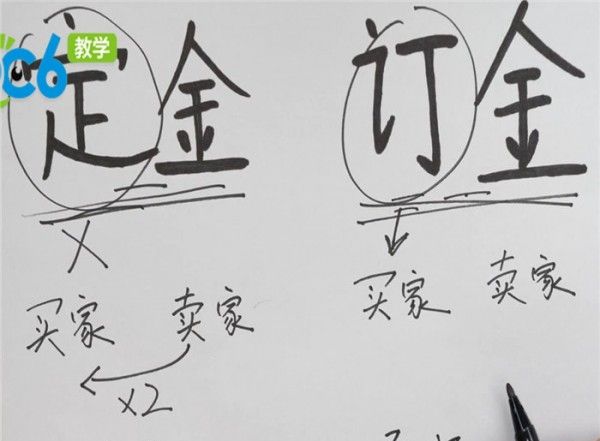 教学
定金 订金
X
买家 卖家 买家 卖家
X2